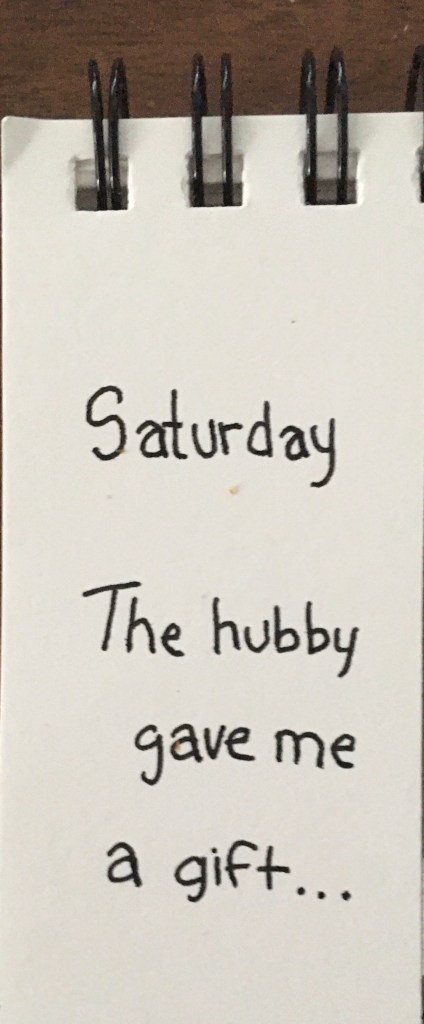 Saturday
The hubby
gave me
a gift...